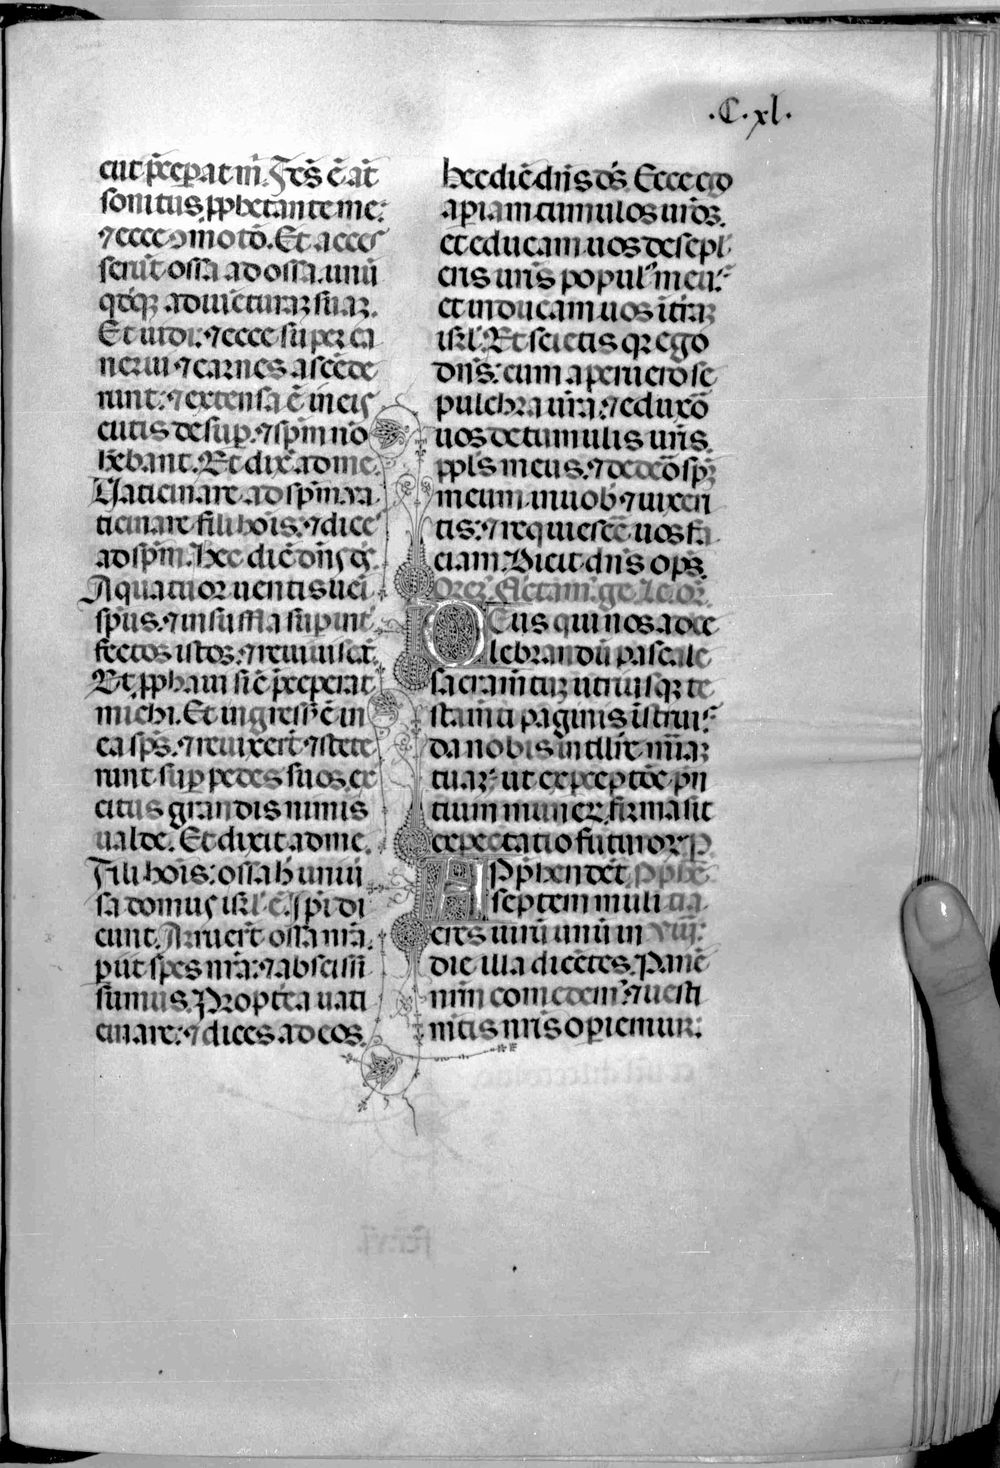 .C.xl.
cut p̄cepat m̄. Fc̄s ē āt
sonitus ꝓphetante me:
⁊ ecce ↄmotō. Et acces
serūt ossa ad ossa. unū
qd̄qꝫ ad iūcturaꝫ suaꝫ.
Et uidi: ⁊ ecce super ea
nerui ⁊ carnes ascēde
runt: ⁊ extensa ē in eis
cutis desup̄. ⁊ spm̄ nō
h̄ebant. Et dix̄ ad me.
Uaticinare ad spm̄. va
ticinare fili hoīs. ⁊ dices
ad spm̄. Hec dic̄ dn̄s d̄s.
A quatuor uentis uēi
spūs. ⁊ insuffla sup̄ int̄
fectos istos. ⁊ reuiuiscāt.
Et ꝓphaui sic̄ p̄ceperat
michi. Et ingress᾽ ē in
ea sps̄. ⁊ reuixert̄ ⁊ stete
runt sup̄ pedes suos. ex̄
citus grandis nimis
ualde. Et dixit ad me.
Fili hoīs: ossa h̄ uniu᾽
sa domus isrl̄ ē. Ipī di
cunt. Aruert̄ ossa nr̄a.
p̄iit spes nr̄a: ⁊ abscissi
sumus. Propt̄ea uati
cinare: ⁊ dices ad eos.
hec dic̄ dn̄s d̄s. Ecce ego
ap̄iam tumulos ur̄os.
et educam uos de sepl᾽
cris ur̄is popul᾽ meu᾽:
et inducam uos ī tr̄aꝫ
isrl̄. Et scietis qꝫ ego
dn̄s: cum aperuero se
pulchra ur̄a: ⁊ eduxō
uos de tumulis ur̄is.
ppl̄s meus. ⁊ dedeō spꝫ̄
meum in uob᾽ ⁊ uixeri
tis: ⁊ requiescē uos fa
ciam. Dicit dn̄s ops̄.
Orem᾽. Flectam᾽. ge. Le. Or̄.
Deus qui nos ad ce
lebrandū pascale
sacram̄tuꝫ utriusqꝫ te
stam̄ti paginis īstruis:
da nobis intllīe mi᾽aꝫ
tuaꝫ: ut ex ꝑceptōe p̄n
tium muneꝝ. firma sit
expectatio futuroꝝ. P.
Apphendēt. pph̄e.
septem muli tia.
eres uirū unū in viij:
die illa dicētes. Panē
nr̄m comedem᾽: ⁊ uesti
m̄tis nr̄is opiemur: